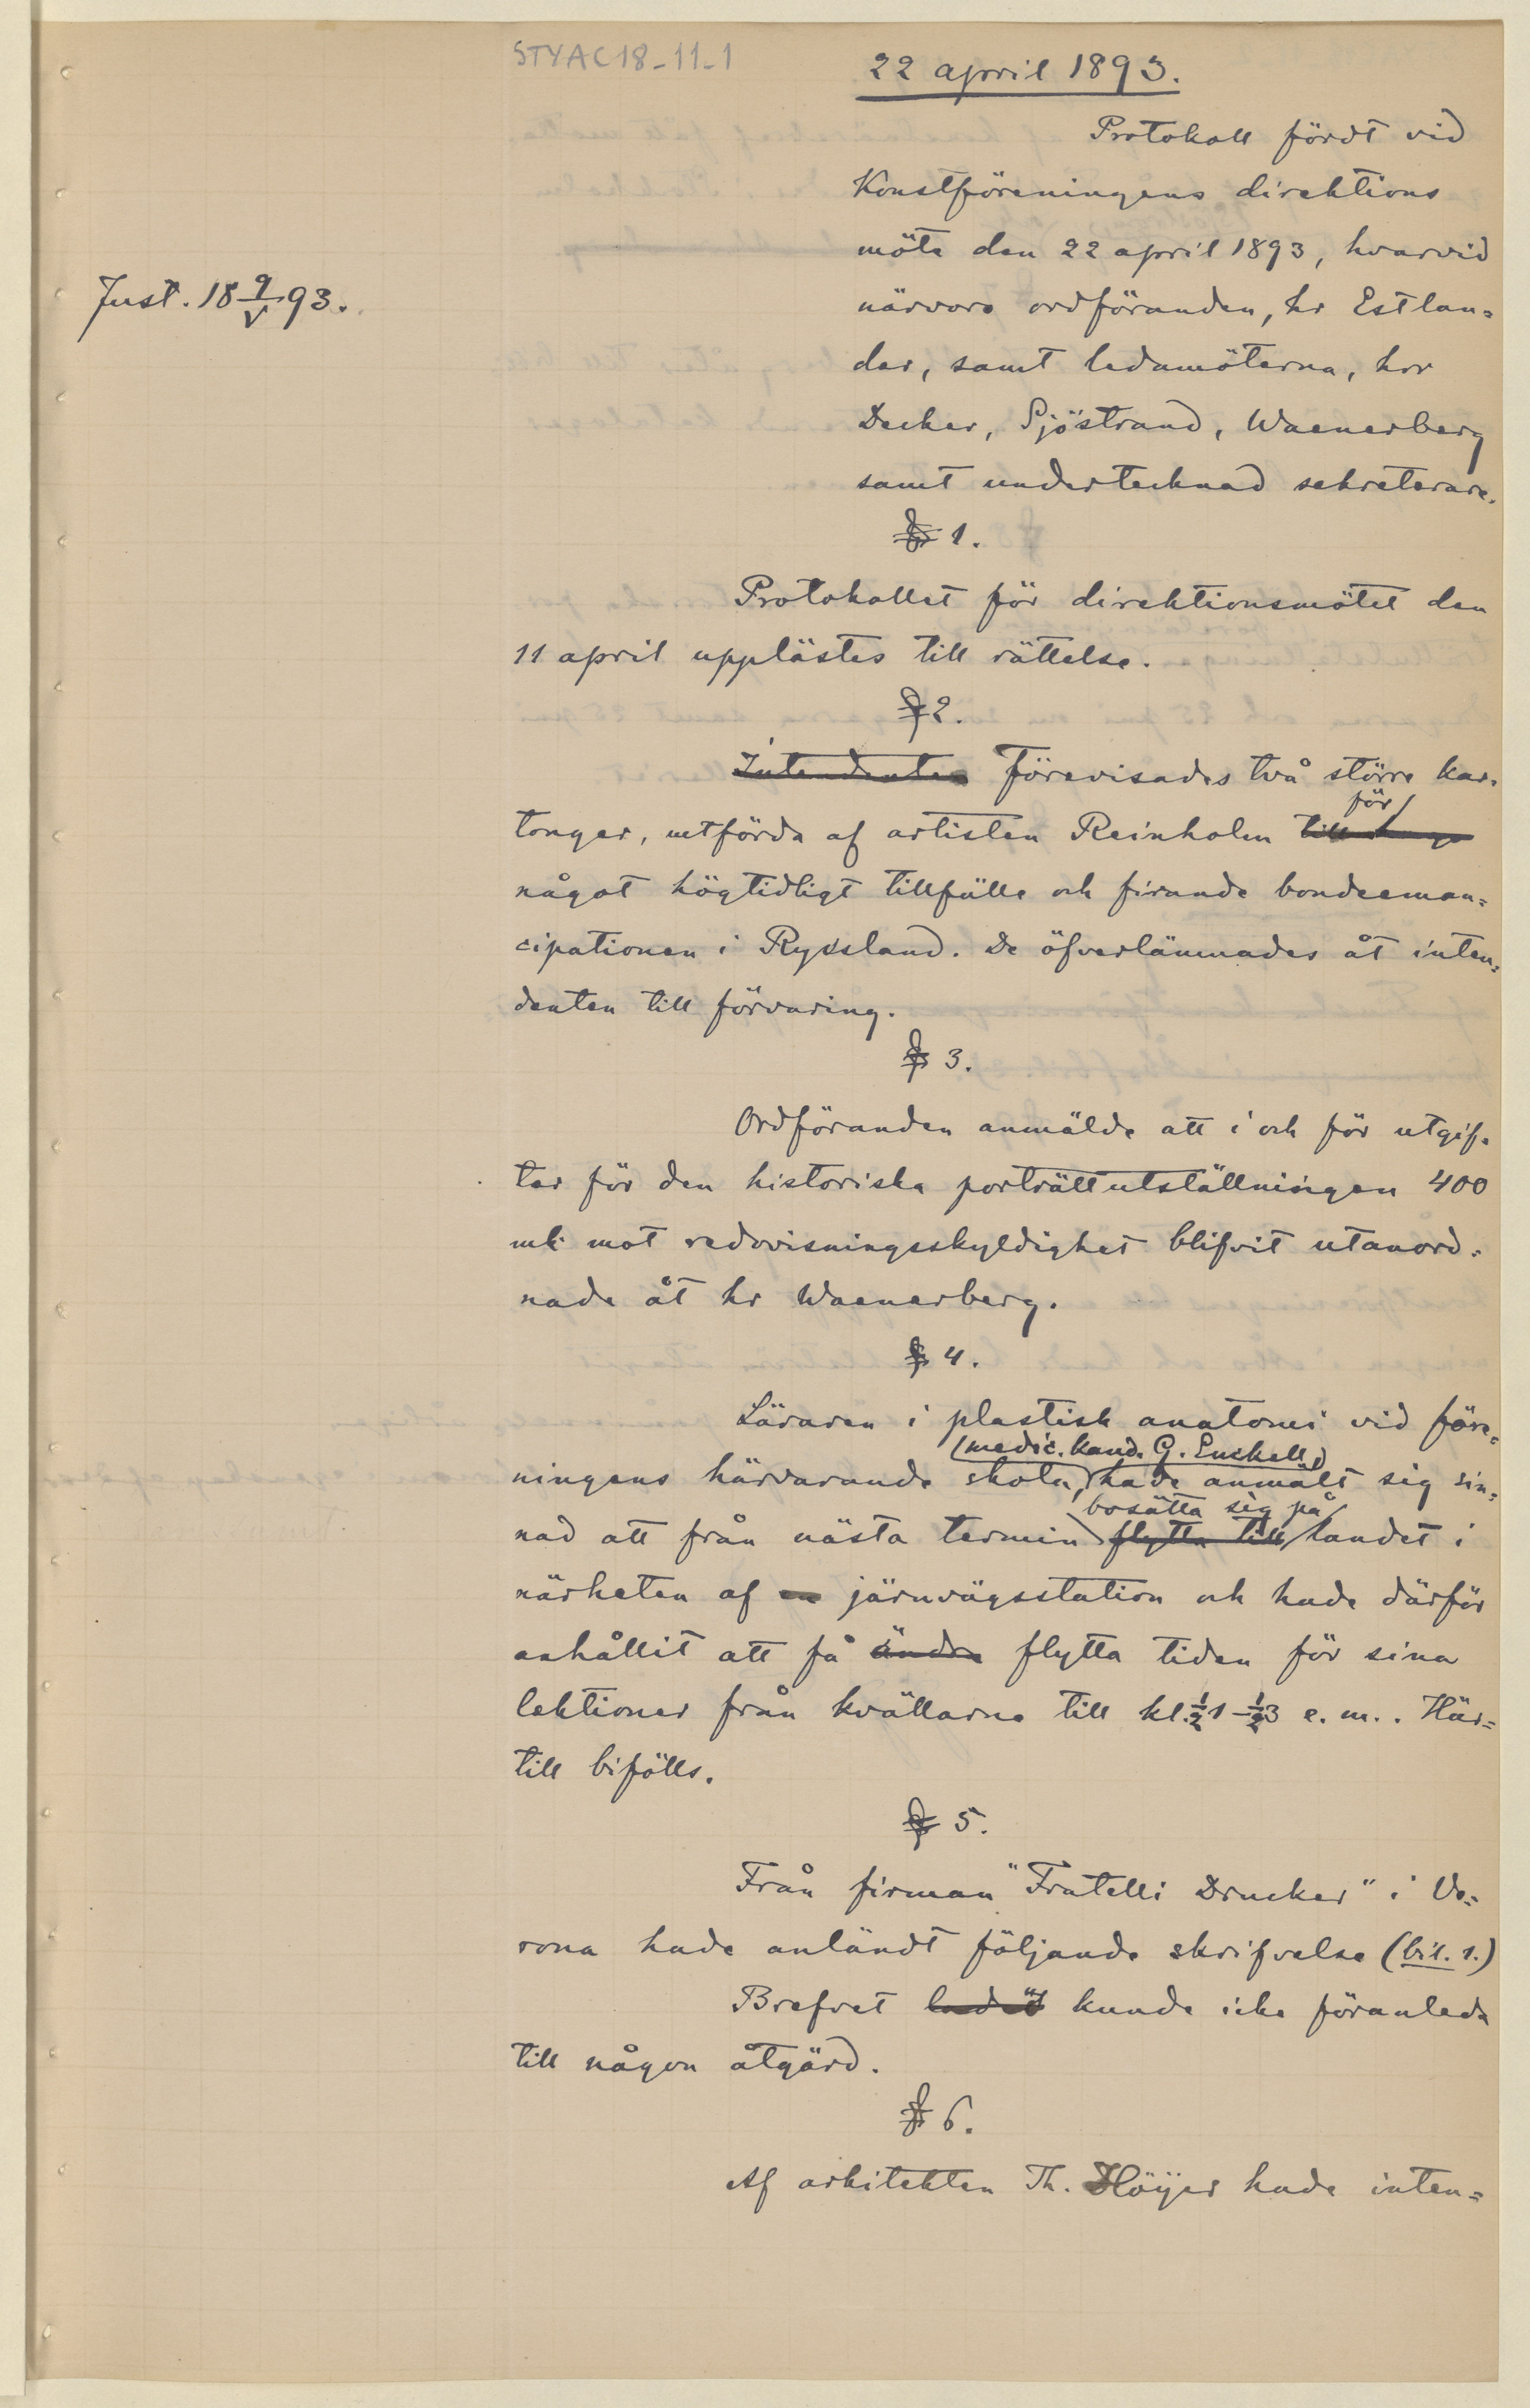 STYAC18-11-1
22 april 1893.
Protokoll fördt vid
Konstföreningens direktions
möte den 22 april 1893, hvarvid
närvoro ordföranden, hr Estlan=
der, samt ledamöterna, hrr
Decker, Sjöstrand, Waenerberg
samt undertecknad sekreterare.
Just. 18 9/V 93.
§ 1.
Protokollet för direktionsmötet den
11 april upplästes till rättelse.
§ 2.
Intendenten Förevisades två större kar=
för
tonger, utförda af artisten Reinholm till
något högtidligt tillfälle och firande bondeeman=
cipationen i Ryssland. De öfverlämnades åt inten=
denten till förvaring.
§ 3.
Ordföranden anmälde att i och för utgif=
ter för den historiska porträttutställningen 400
mk mot redovisningsskyldighet blifvit utanord=
nade åt hr Waenerberg.
§ 4.
Läraren i plastisk anatomi vid före=
(medic. kand. G. Enckell,)
ningens härvarande skola, hade anmält sig sin=
bosätta sig på
nad att från nästa termin flytta till landet i
närheten af en järnvägsstation och hade därför
anhållit att få ändra flytta tiden för sina
lektioner från kvällarne till kl. ½1-½3 e.m.. Här=
till bifölls.
§ 5.
Från firman "Fratelli Drucker" i Ve=
rona hade anländt följande skrifvelse (bil. 1.)
Brefvet kunde icke föranleda
till någon åtgärd.
§ 6.
Af arkitekten Th. Höijer hade inten=